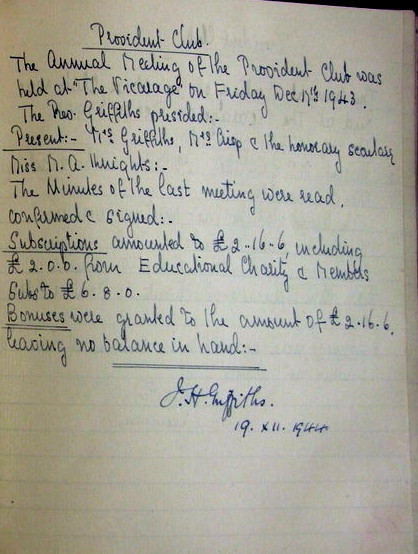 Provident Club.
The Annual Meeting of the Provident Club was
held at "The Vicarage" on Friday Dec 17th 1943.
The Rev. Griffiths presided:-
Present:- Mrs Griffiths, Mrs Crisp & the honorary secretary
Miss M. A. Knights:-
The Minutes of the last meeting were read,
confirmed & signed:-
Subscriptions amounted to £2-16-6 including
£2.0.0. from Educational Charity & Members
Subs to £6.8.0.
Bonuses were granted to the amount of £2-16-6,
leaving no balance in hand:-
J. H. Griffiths.
19. XII. 1944